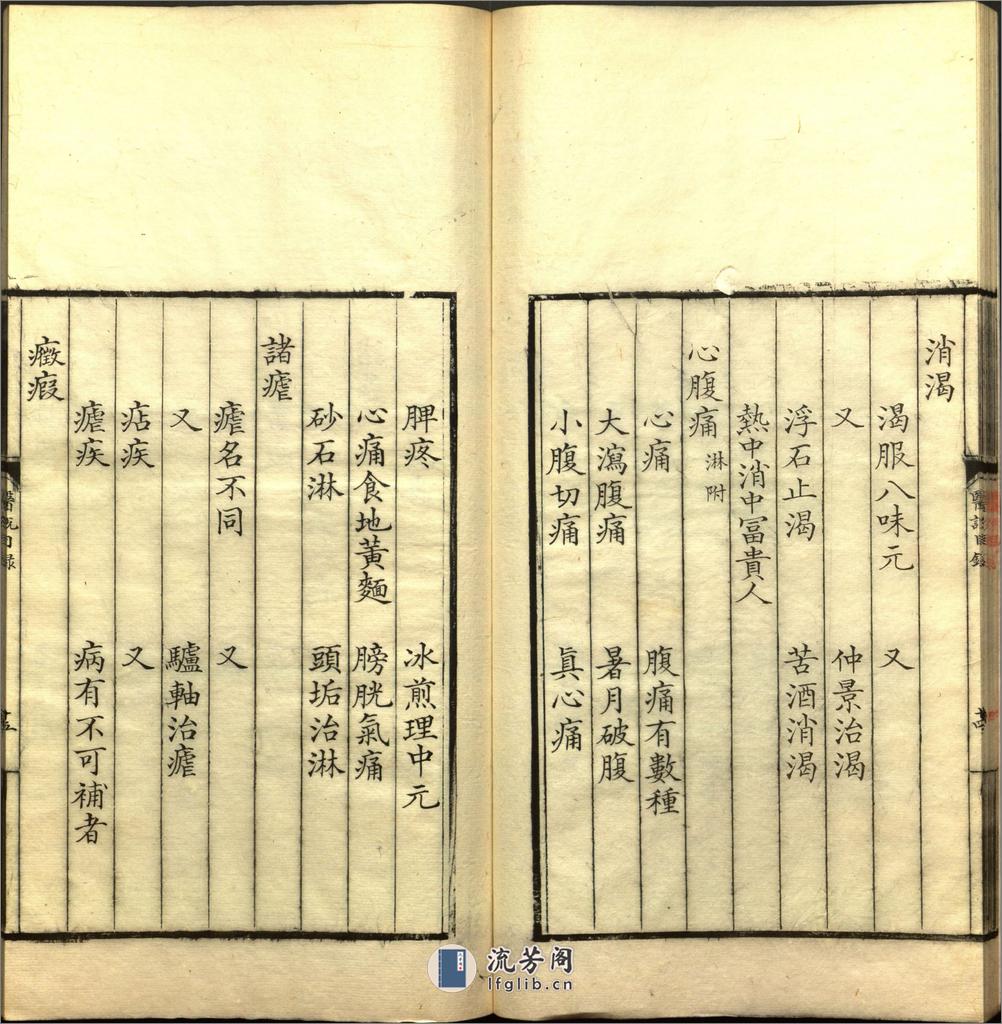 消渴
渴服八味元　又
又　仲景治渴
浮石止渴　苦酒消渴
熱中消中冨貴人
心腹痛 淋附
心痛　腹痛有數種
大瀉腹痛　暑月破腹
小腹切痛　眞心痛
脾疼　冰煎理中元
心痛食地黃麵　膀胱氣痛
砂石淋　頭垢治淋
諸瘧
瘧名不同　又
又　驢軸治瘧
痁疾　又
瘧疾　病有不可補者
癥瘕
醫説目錄
流芳阁
lfglib.cn